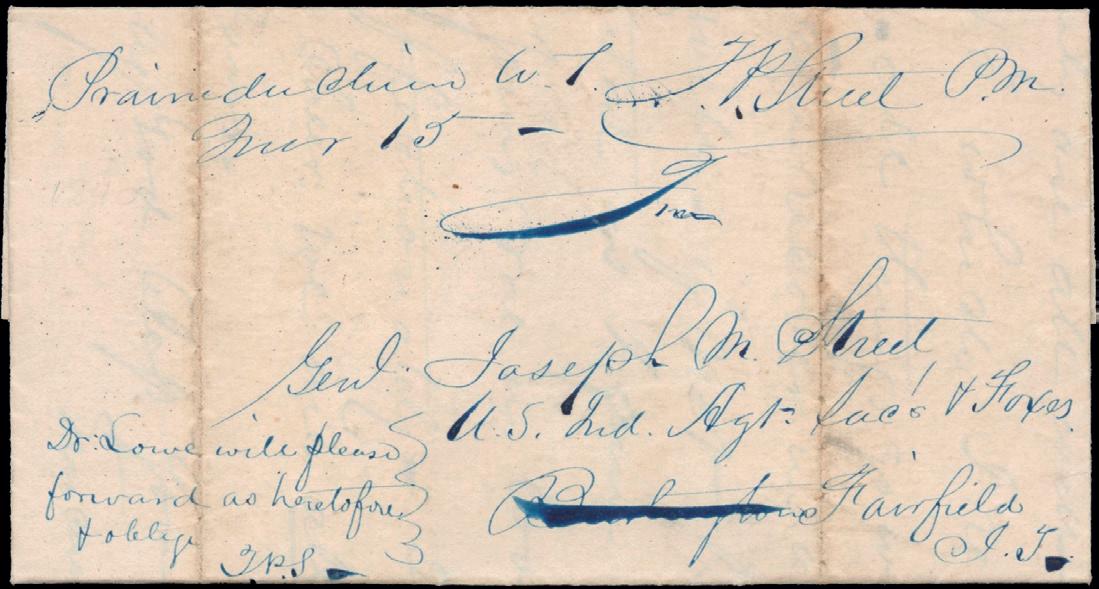 Prairie du Chien W. T. T. P. Street P.M.
Mar 15 -
Free
Genl. Joseph M. Street
U. S. Ind. Agt. Sac's & Foxes.
Burlington Fairfield
I. T.
Dr. Lowe will please
forward as heretofore
& oblige
T.P.S